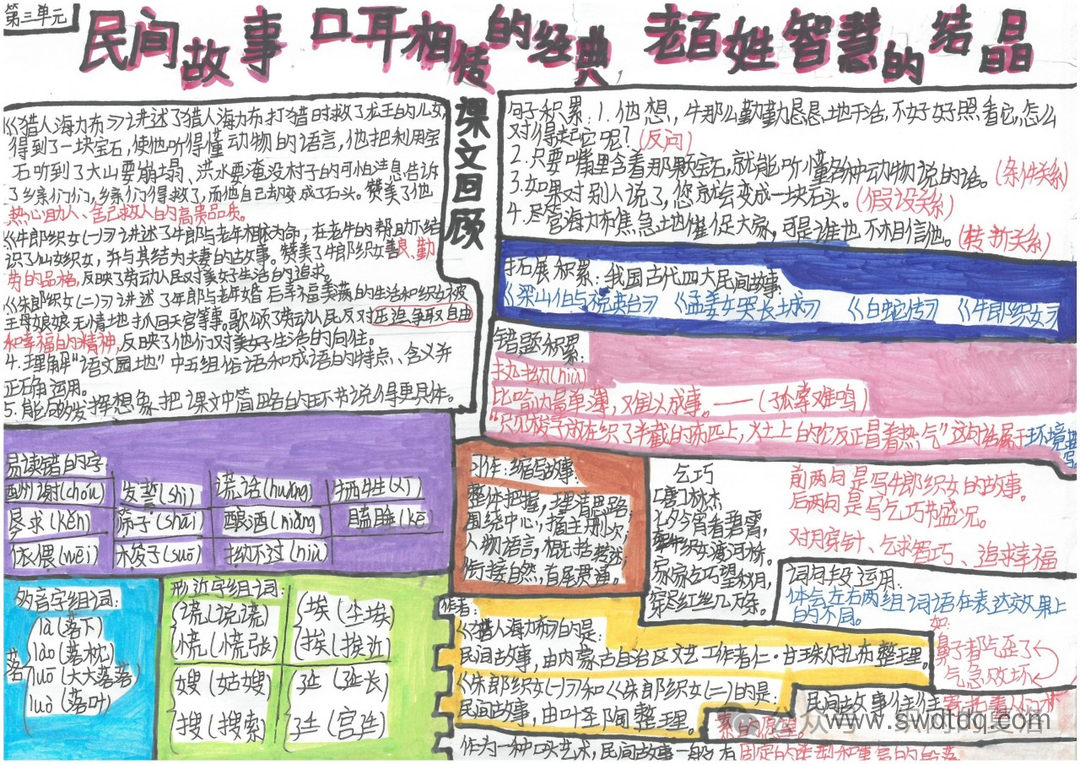 第三单元
民间故事 口耳相传的经典 老百姓智慧的结晶
课文回顾
《猎人海力布》讲述了猎人海力布打猎时救了龙王的儿女
得到了一块宝石,使他听得懂动物的语言,他把利用宝
石听到了大山要崩塌、洪水要淹没村子的可怕消息告诉
了乡亲们们,乡亲们得救了,而他自己却变成了石头。赞美了他
热心助人、舍己救人的高尚品质。
《牛郎织女(一)》讲述了牛郎与老牛相依为命,在老牛的帮助下结
识了仙女织女,并与其结为夫妻的故事。赞美了牛郎织女善良、勤
劳的品格,反映了劳动人民对美好生活的追求。
《牛郎织女(二)》讲述了牛郎与老牛婚后幸福美满的生活和织女被
王母娘娘无情地抓回天宫等事,歌颂了劳动人民反对压迫争取自由
和幸福的精神,反映了他们对美好生活的向往。
4.理解"语文园地"中五组俗语和成语的特点、含义并
正确运用。
5.能的发挥想象,把课文中简略的环节说得更具体。
句子积累:1.他想,牛那么勤勤恳恳地干活,不好好照看它,怎么
对得起它呢?(反问)
2.只要嘴里含着那颗宝石,就能听懂各种动物说的话。(条件关系)
3.如果对别人说了,您就会变成一块石头。(假设关系)
4.尽管海力布焦急地催促大家,可是谁也不相信他。(转折关系)
拓展积累:我国古代四大民间故事
《梁山伯与祝英台》 《孟姜女哭长城》 《白蛇传》 《牛郎织女》
错题积累:
执拗(niù)
比喻力量单薄,难以成事。——(孤掌难鸣)
"只见梭子放在织了半截的布匹上,灶上的饭正冒着热气"这句话属于环境描写
易读错的字:
酬谢(chóu) 发誓(shì) 谎话(huǎng) 牺牲(xī)
恳求(kěn) 筛子(shāi) 酿酒(niàng) 瞌睡(kē)
依偎(wēi) 梭子(suō) 拗不过(niù)
多音字组词:
落
là(落下)
lào(落枕)
luō(大大落落)
luò(落叶)
形近字组词:
谎(说谎)
慌(慌张)
嫂(姑嫂)
搜(搜索)
埃(尘埃)
挨(挨近)
延(延长)
廷(宫廷)
习作:缩写故事
整体把握,理清思路
围绕中心,摘主删次
人物语言,概括叙述
衔接自然,首尾贯通。
乞巧
[唐]林杰
七夕今宵看碧霄,
牵牛织女渡河桥。
家家乞巧望秋月,
穿尽红丝几万条。
前两句是写牛郎织女的故事。
后两句是写乞巧节盛况。
对月穿针、乞求智巧、追求幸福
词句段运用:
体会左右两组词语在表达效果上
的不同。
如:
鼻子都气歪了
气急败坏
作者:
《猎人海力布》的是:
民间故事,由内蒙古自治区文艺工作者仁·甘珠尔扎布整理。
《牛郎织女(一)》和《牛郎织女(二)》的是:
民间故事,由叶圣陶整理。
民间故事往往
的愿望。
作为一种口头艺术,民间故事一般有固定的类型和重复的段落
www.swdtdq.com